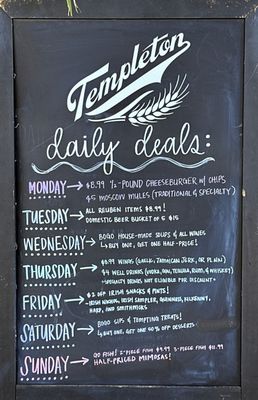 Templeton
daily deals:
MONDAY → $8.99 1/2-POUND CHEESEBURGER W/ CHIPS
$5 MOSCOW MULES (TRADITIONAL & SPECIALTY)
TUESDAY → ALL REUBEN ITEMS $8.99!
DOMESTIC BEER BUCKET OF 5 $15
WEDNESDAY → BOGO HOUSE-MADE SOUPS & ALL WINES
↳ BUY ONE, GET ONE HALF-PRICE!
THURSDAY → $8.99 WINGS (GARLIC, JAMAICAN JERK, OR PLAIN)
$4 WELL DRINKS (VODKA, GIN, TEQUILA, RUM, & WHISKEY)
*SPECIALTY DRINKS NOT ELIGIBLE FOR DISCOUNT*
FRIDAY → $2 OFF IRISH SNACKS & PINTS!
IRISH NACHOS, IRISH SAMPLER, GUINNESS, KILKENNY,
HARP, AND SMITHWICKS
SATURDAY → BOGO SIPS & TEMPTING TREATS!
↳ BUY ONE, GET ONE 50% OFF DESSERTS
SUNDAY → GO FISH! 2-PIECE FISH $9.99 3-PIECE FISH $11.99
HALF-PRICED MIMOSAS!